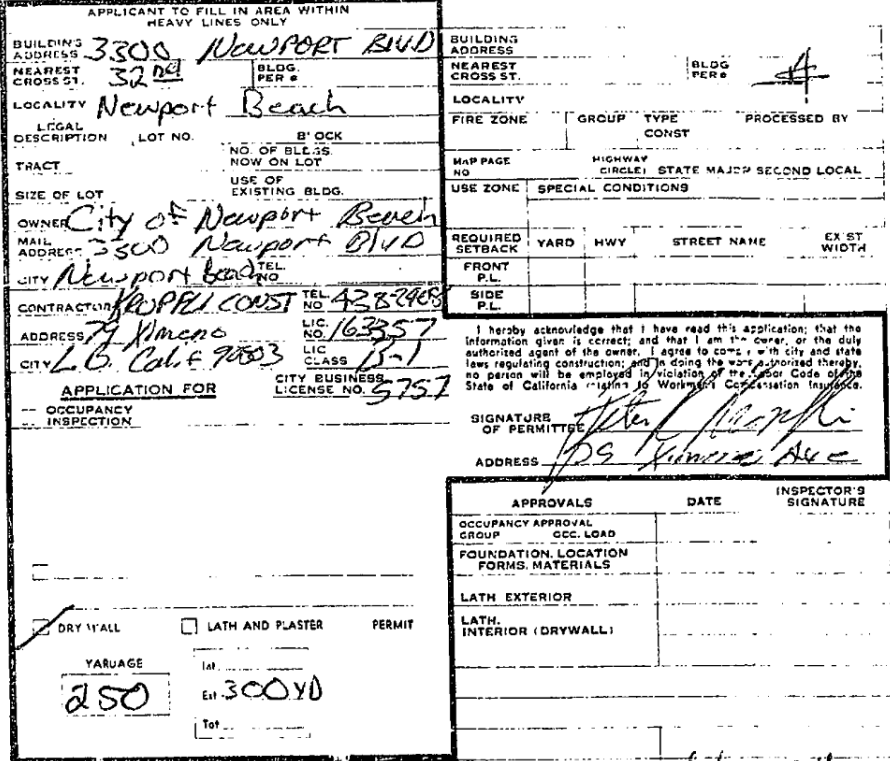 APPLICANT TO FILL IN AREA WITHIN
HEAVY LINES ONLY
BUILDING ADDRESS 3300 Newport Blvd
NEAREST CROSS ST. 32nd BLDG. PER #
LOCALITY Newport Beach
LEGAL DESCRIPTION LOT NO. B'OCK
TRACT NO. OF BLDGS. NOW ON LOT
SIZE OF LOT USE OF EXISTING BLDG.
OWNER City of Newport Beach
MAIL ADDRESS 3300 Newport Blvd
CITY Newport Beach TEL. NO
CONTRACTOR CONST TEL. NO
ADDRESS 79 Ximeno LIC. NO. 163357
CITY L.B. Calif 90803 LIC. CLASS B-1
APPLICATION FOR CITY BUSINESS LICENSE NO. 5757
OCCUPANCY
INSPECTION
DRY WALL LATH AND PLASTER PERMIT
YARDAGE
250
Int.
Ext 300 YD
Tot
BUILDING ADDRESS
NEAREST CROSS ST. BLDG. PER # 4
LOCALITY
FIRE ZONE GROUP TYPE CONST PROCESSED BY
MAP PAGE NO HIGHWAY CIRCLE: STATE MAJOR SECOND LOCAL
USE ZONE SPECIAL CONDITIONS
REQUIRED SETBACK YARD HWY STREET NAME EXIST WIDTH
FRONT P.L.
SIDE P.L.
I hereby acknowledge that I have read this application; that the
information given is correct; and that I am the owner, or the duly
authorized agent of the owner. I agree to comply with city and state
laws regulating construction; and in doing the work authorized thereby,
no person will be employed in violation of the Labor Code of the
State of California relating to Workmen's Compensation Insurance.
SIGNATURE OF PERMITTEE Peter
ADDRESS 79 Ximeno Ave
APPROVALS DATE INSPECTOR'S SIGNATURE
OCCUPANCY APPROVAL
GROUP OCC. LOAD
FOUNDATION. LOCATION
FORMS. MATERIALS
LATH EXTERIOR
LATH.
INTERIOR (DRYWALL)